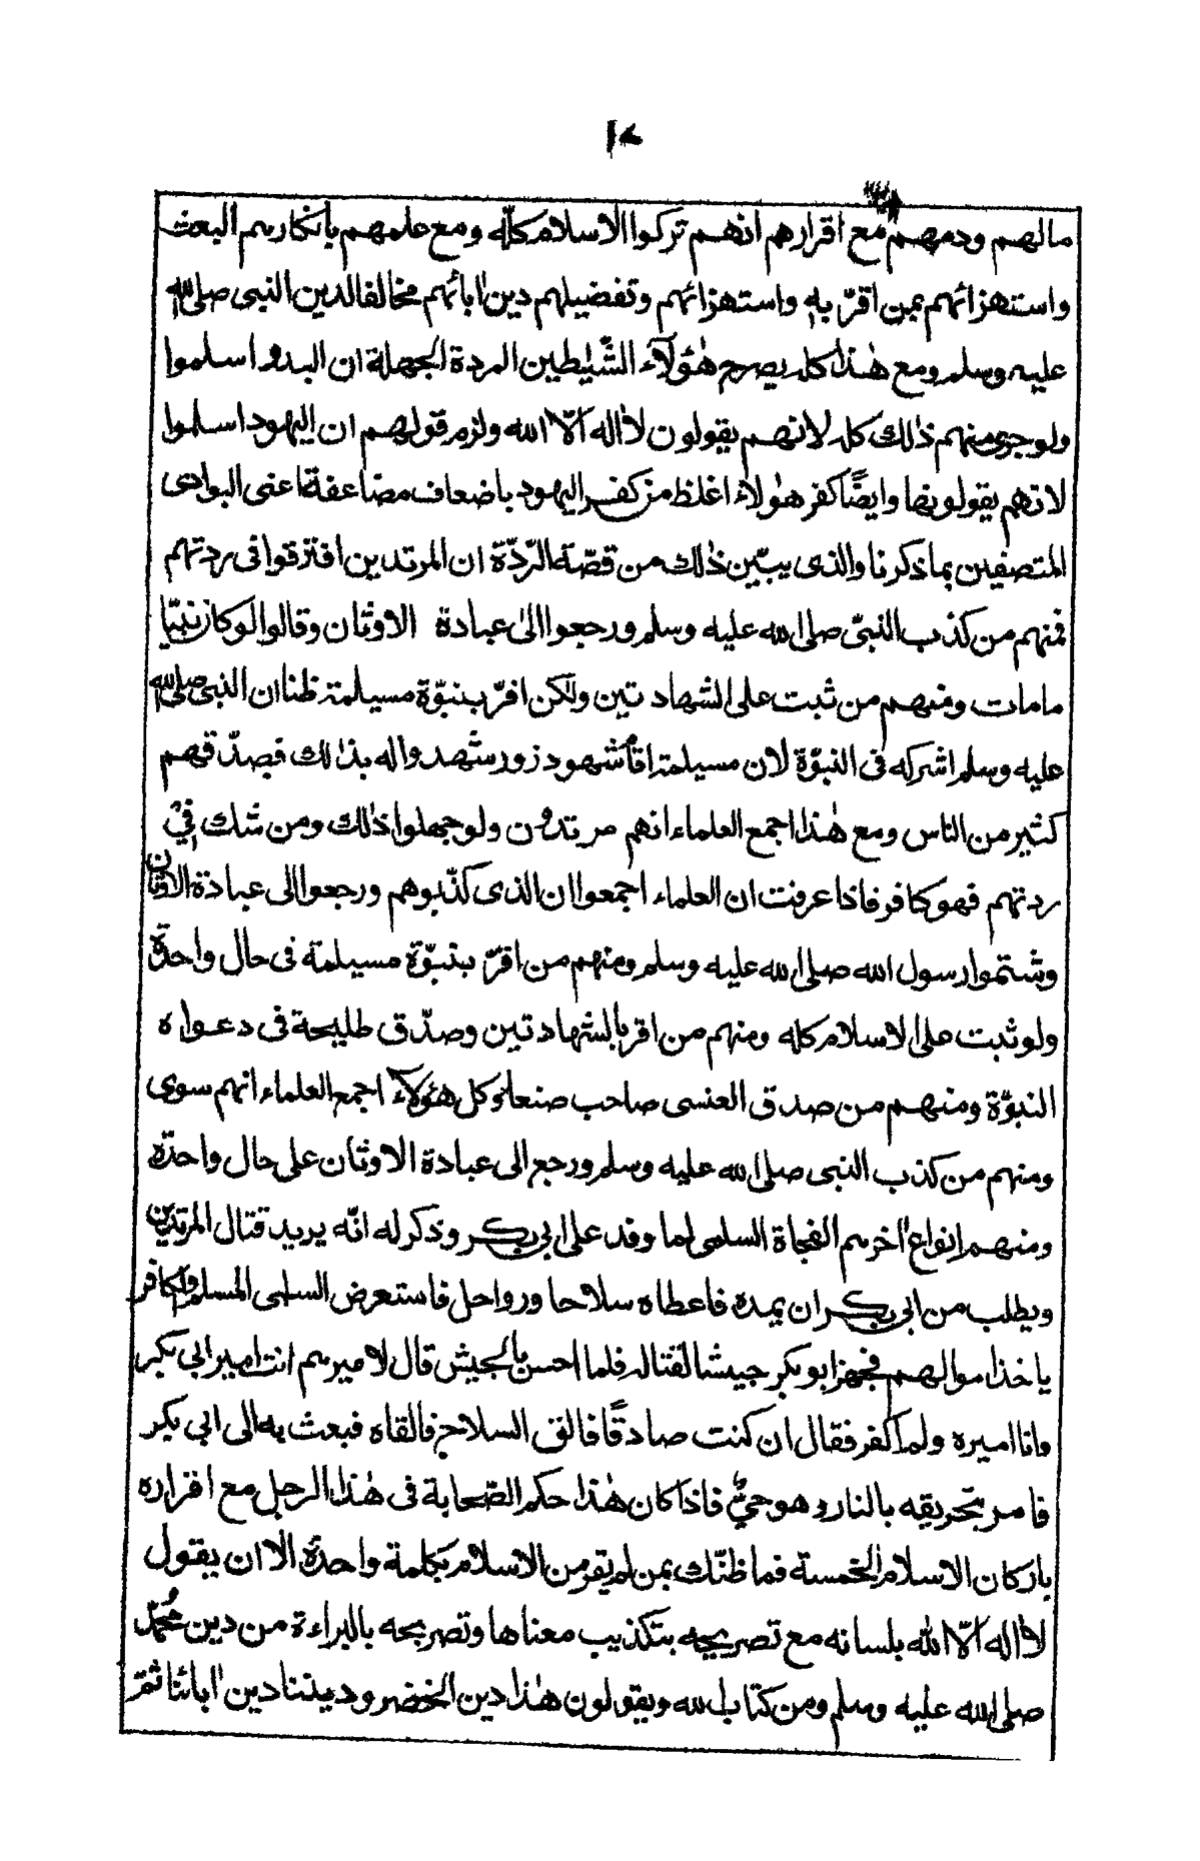 ١٤
مالهم ودمهم مع اقرارهم انهم تركوا الاسلام كلّه ومع علمهم بانكارهم البعث
واستهزائهم بمن اقرّ به واستهزائهم وتفضيلهم دين اٰبائهم مخالفا لدين النبى صلى الله
عليه وسلم ومع هٰذا كله يصرح هٰؤلآء الشّيٰطين المردة الجهلة ان البدو اسلموا
ولو جرى منهم ذٰلك كله لانهم يقولون لآ اله الّا الله ولزم قولهم ان اليهود اسلموا
لانهم يقولونها وايضًا كفر هٰولاء اغلظ من كفر اليهود باضعاف مضاعفة اعنى البوادى
المتصفين بما ذكرنا والذى يبيّن ذٰلك من قصّة الرّدّة ان المرتدين افترقوا فى ردتهم
فمنهم من كذب النبىّ صلى الله عليه وسلم ورجعوا الىٰ عبادة الاوثان وقالوا لو كان نبيّا
ما مات ومنهم من ثبت على الشهادتين ولٰكن اقرّ بنبوّة مسيلمة ظنا ان النبى صلى الله
عليه وسلم اشركه فى النبوّة لان مسيلمة اقام شهود زور شهدوا له بذٰلك فصدّقهم
كثير من الناس ومع هٰذا اجمع العلماء انهم مرتدون ولو جهلوا ذٰلك ومن شك فى
ردتهم فهو كافر فاذا عرفت ان العلماء اجمعوا ان الذى كذّبوهم ورجعوا الى عبادة الاوثان
وشتموا رسول الله صلى الله عليه وسلم ومنهم من اقرّ بنبوّة مسيلمة فى حال واحدة
ولو ثبت على الاسلام كله ومنهم من اقر بالشهادتين وصدّق طليحة فى دعواه
النبوّة ومنهم من صدق العنسى صاحب صنعاء وكل هٰؤلآء اجمع العلماء انهم سوى
ومنهم من كذب النبى صلى الله عليه وسلم ورجع الى عبادة الاوثان على حال واحدة
ومنهم انواع اٰخرهم الفجاة السلمى لما وفد على ابى بكر وذكر له انّه يريد قتال المرتدين
ويطلب من ابى بكر ان يمده فاعطاه سلاحا ورواحل فاستعرض السلمى المسلم والكافر
ياخذ اموالهم فجهز ابو بكر جيشا لقتاله فلما احسن بالجيش قال لاميرهم انت امير ابى بكر
وانا اميره ولم اكفر فقال ان كنت صادقًا فالق السلاح فالقاه فبعث به الى ابى بكر
فامر بتحريقه بالنار وهو حىٌّ فاذا كان هٰذا حكم الصّحابة فى هٰذا الرجل مع اقراره
باركان الاسلام الخمسة فما ظنّك بمن لم يقر من الاسلام بكلمة واحدة الا ان يقول
لآ اله الّا الله بلسانه مع تصريحه بتكذيب معناها وتصريحه بالبراءة من دين مُحمّد
صلى الله عليه وسلم ومن كتاب الله ويقولون هٰذا دين الحضر وديننا دين اٰبائنا ثم